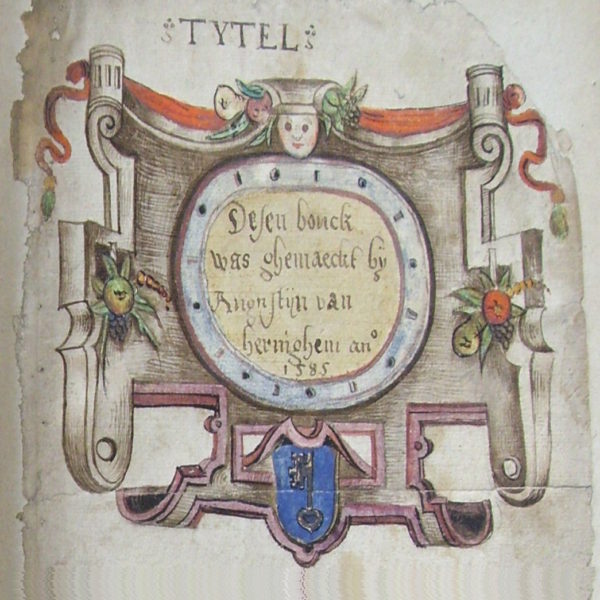 TYTEL
Desen bouck
was ghemaeckt by
Augustijn van
hernighem anº
1585